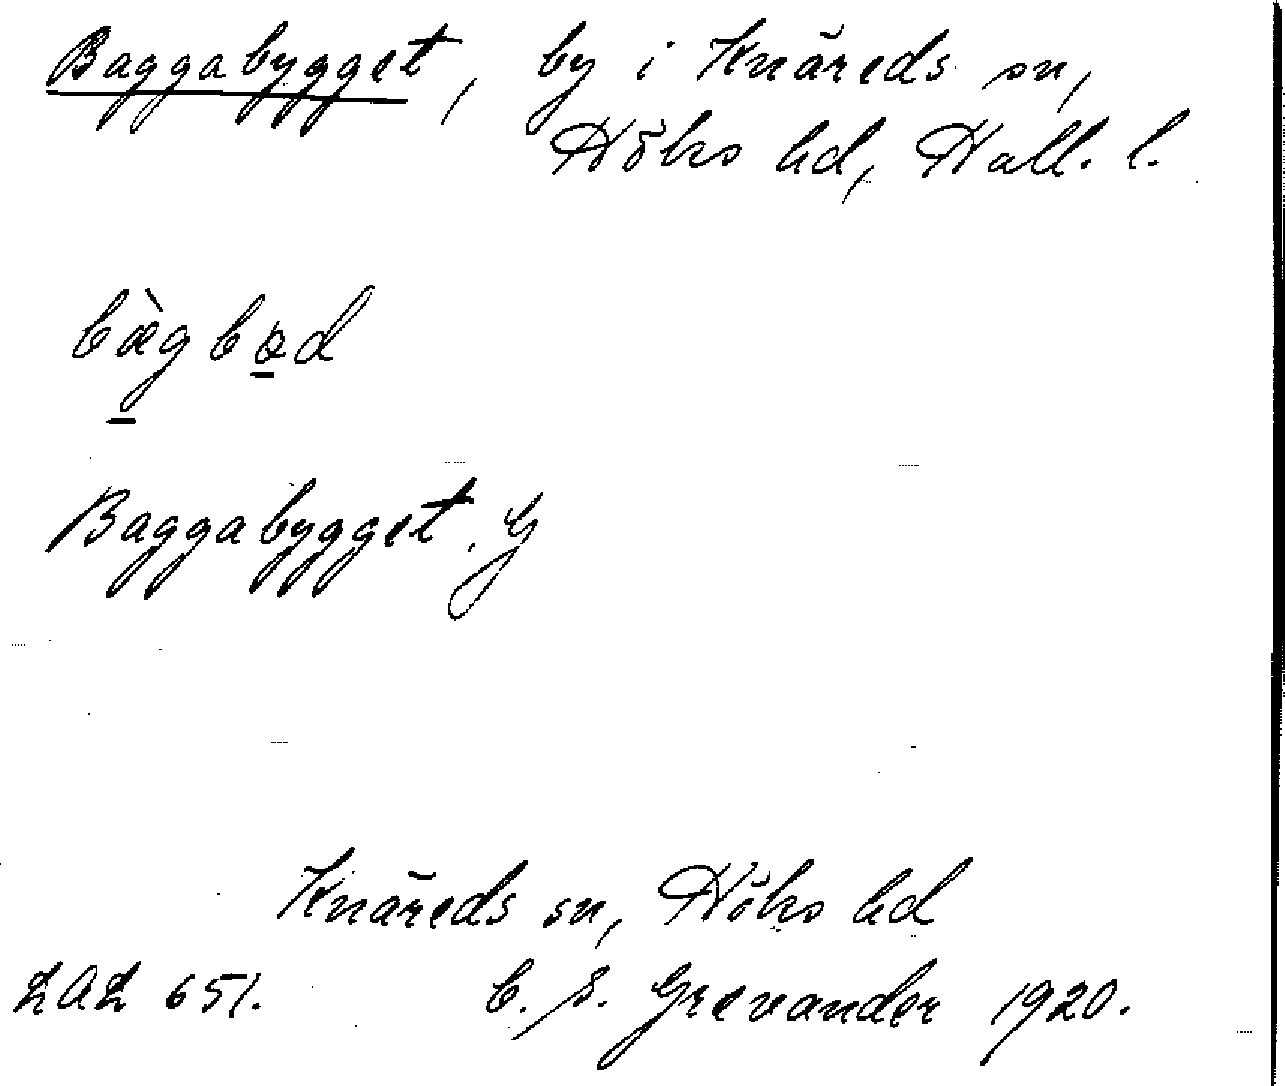 Baggabygget, by i Knäreds sn,
Höks hd, Hall. l.
bæ̀gbød
Baggabygget. G
Knäreds sn, Höks hd
LAL 651. C. S. Grevander 1920.